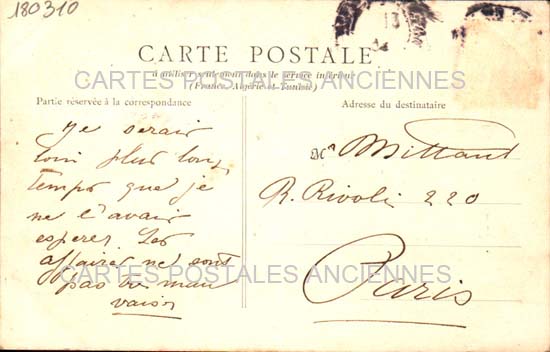 180310
13
CARTE POSTALE
à utiliser seulement dans le service intérieur
(France, Algérie et Tunisie)
CARTES POSTALES ANCIENNES
Partie réservée à la correspondance
Adresse du destinataire
Je serais
loin plus long
temps que je
ne l'avais
esperer. Les
affaires ne sont
pas
Mr Mittant
R. Rivoli 220
Paris
CARTES POSTALES ANCIENNES